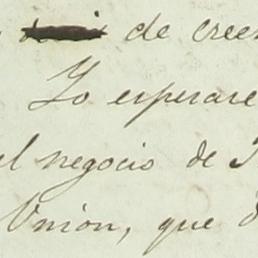 de creer
Yo esperare
el negocio de
Union, que